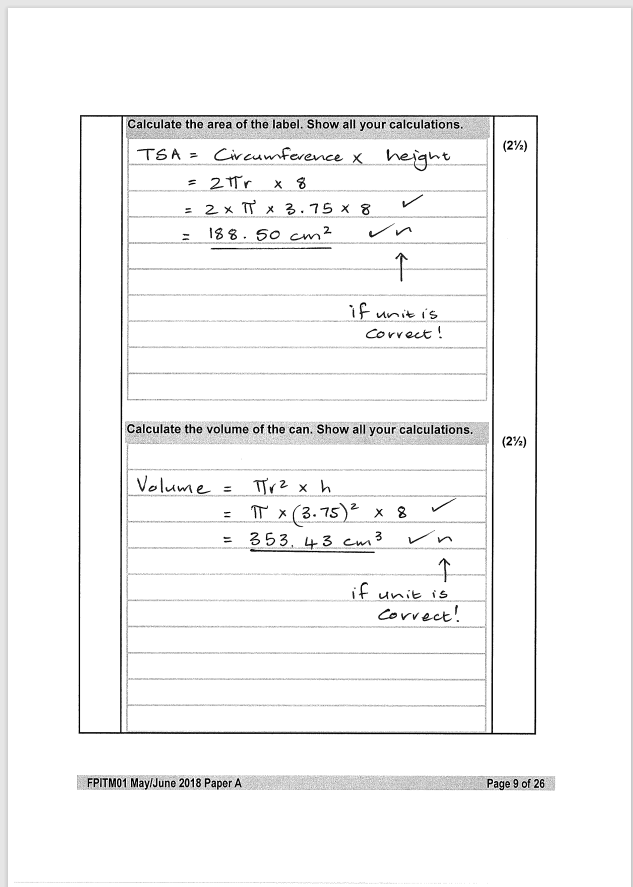 Calculate the area of the label. Show all your calculations.
(2½)
TSA = Circumference x height
= 2πr x 8
= 2 x π x 3.75 x 8 ✓
= 188.50 cm² ✓
↑
if unit is
correct!
Calculate the volume of the can. Show all your calculations.
(2½)
Volume = πr² x h
= π x (3.75)² x 8 ✓
= 353.43 cm³ ✓
↑
if unit is
correct!
FPITM01 May/June 2018 Paper A
Page 9 of 26